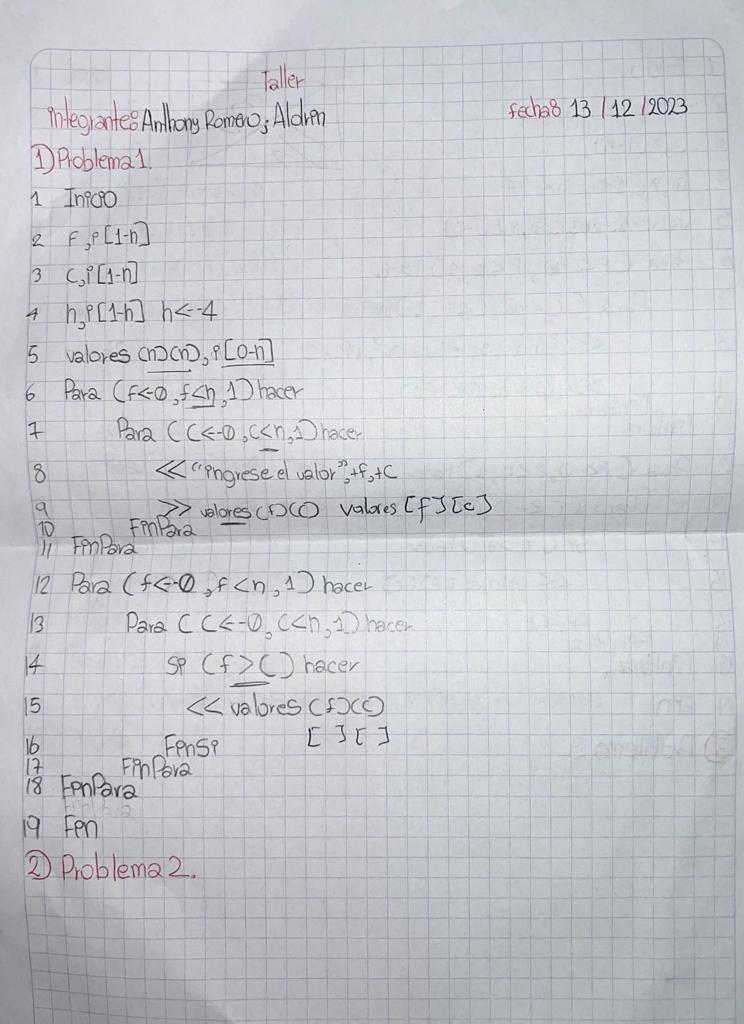 Taller
integrantes: Anthony Romero; Aldren
fecha: 13/12/2023
1) Problema 1.
1 Inicio
2 F, i [1-n]
3 C, i [1-n]
4 n, i [1-n] n<-4
5 valores (n)(n), i [0-n]
6 Para (f<-0, f<n, 1) hacer
7 Para (C<-0, C<n, 1) hacer
8 << "ingrese el valor", +f, +C
9 >> valores (f)(c) valores [f][c]
10 FinPara
11 FinPara
12 Para (f<-0, f<n, 1) hacer
13 Para (C<-0, C<n, 1) hacer
14 si (f>C) hacer
15 << valores (f)(c)
16 FinSi [ ] [ ]
17 FinPara
18 FinPara
19 Fin
2) Problema 2.